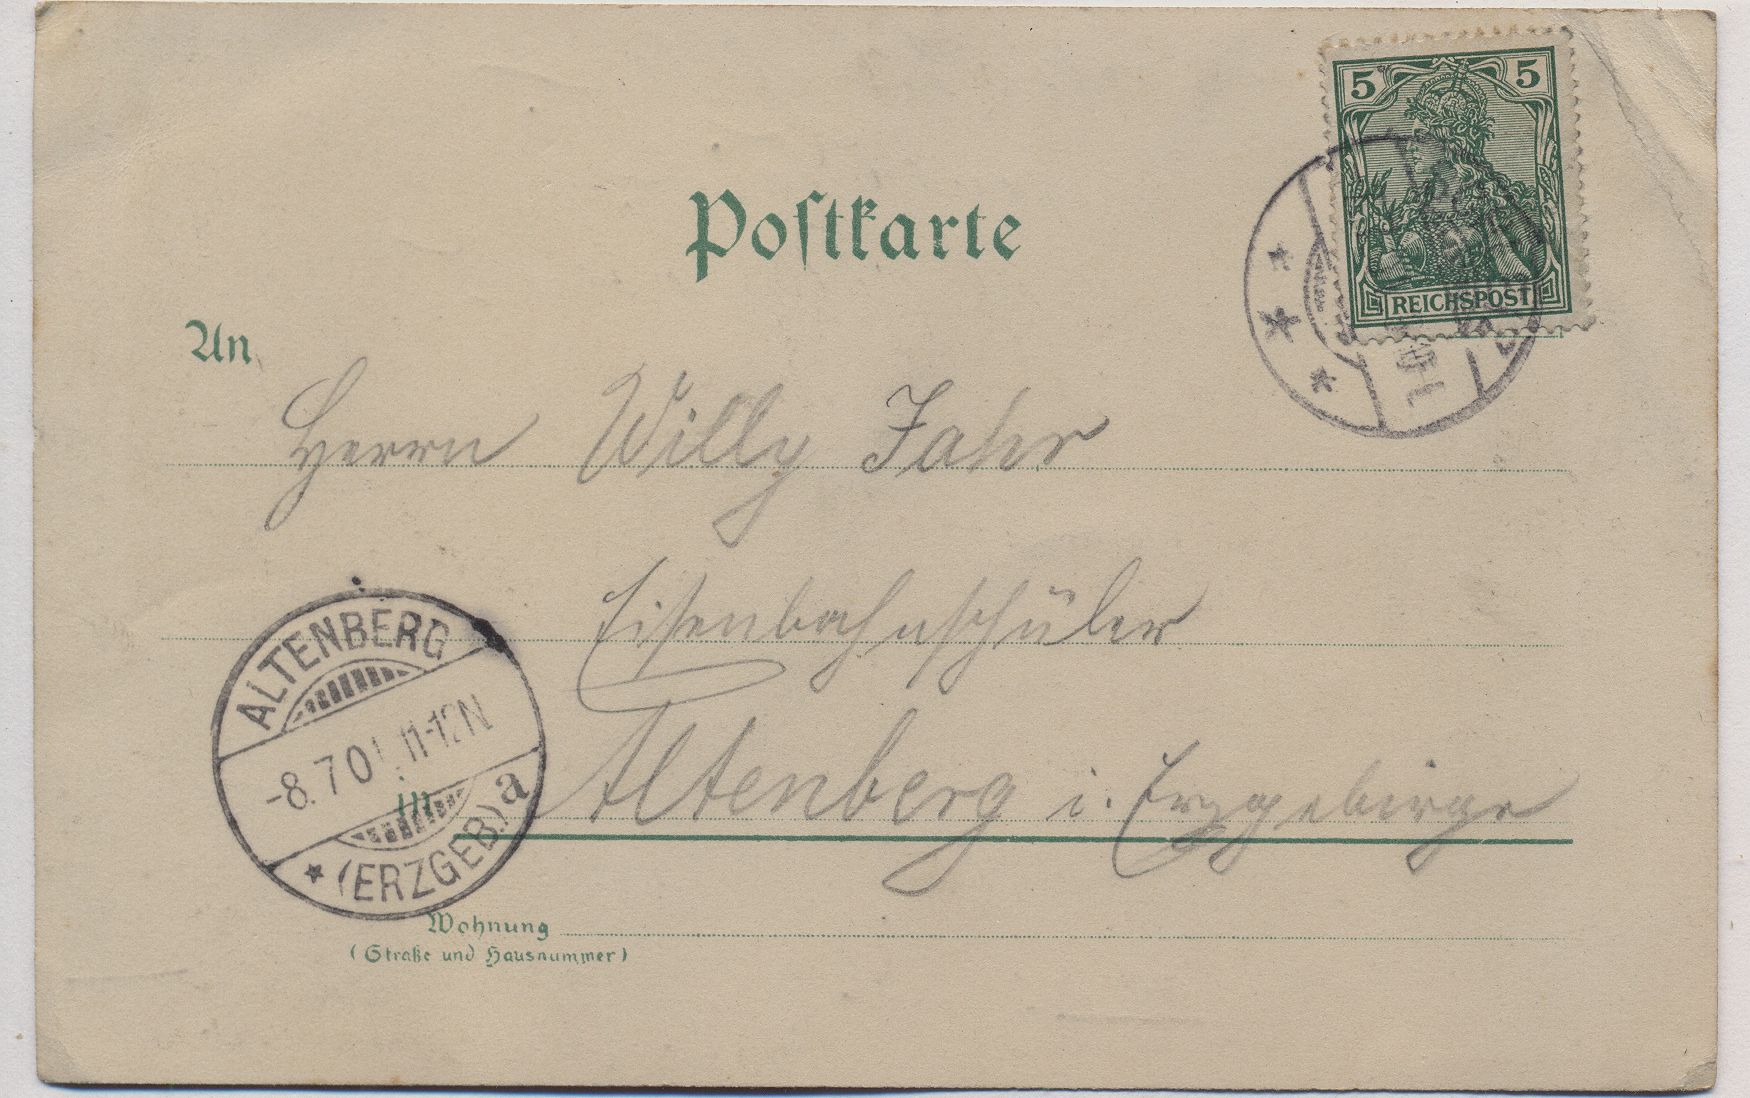 5 5
REICHSPOST
Postkarte
An
Herrn Willy Jahr
Eisenbahnschüler
in Altenberg i. Erzgebirge
ALTENBERG
-8.7.01. 11-12N
* (ERZGEB.) a
Wohnung
(Straße und Hausnummer)